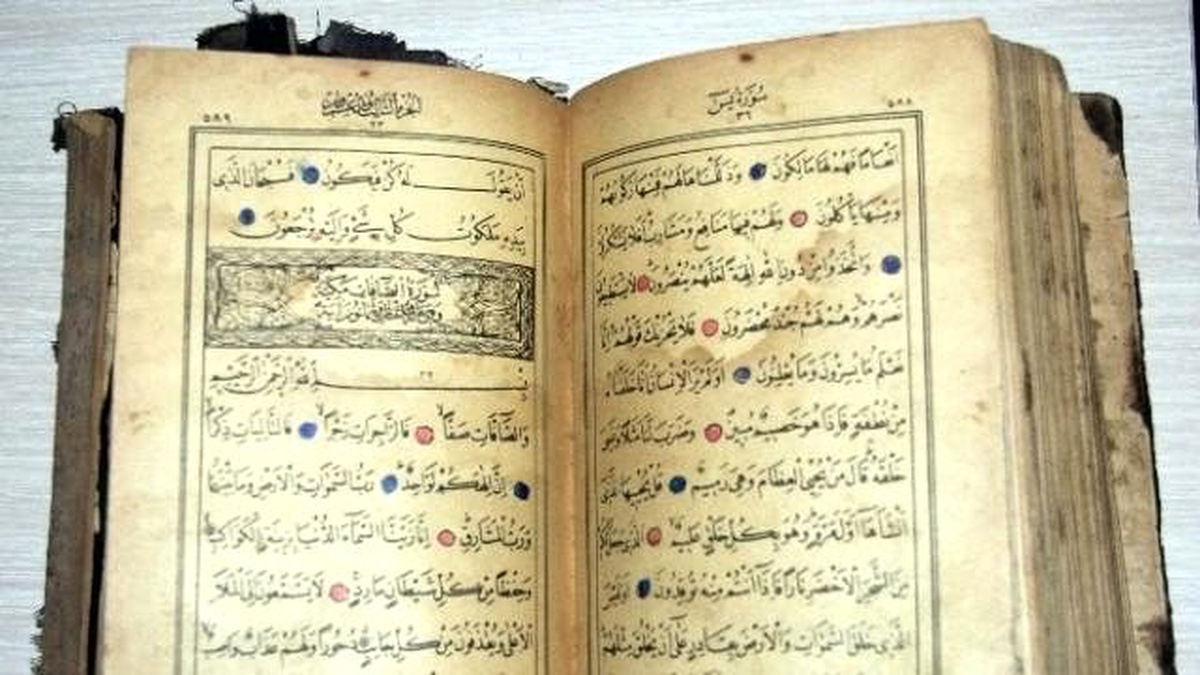 سُورَةُ يٰسٓ
٣٦
٥٨٨
اَنْعَامًا فَهُمْ لَهَا مَالِكُونَ وَذَلَّلْنَاهَا لَهُمْ فَمِنْهَا رَكُوبُهُمْ
وَمِنْهَا يَأْكُلُونَ وَلَهُمْ فِيهَا مَنَافِعُ وَمَشَارِبُ اَفَلَا يَشْكُرُونَ
وَاتَّخَذُوا مِنْ دُونِ اللّٰهِ اٰلِهَةً لَعَلَّهُمْ يُنْصَرُونَ لَا يَسْتَطِيعُونَ
نَصْرَهُمْ وَهُمْ لَهُمْ جُنْدٌ مُحْضَرُونَ فَلَا يَحْزُنْكَ قَوْلُهُمْ اِنَّا
نَعْلَمُ مَا يُسِرُّونَ وَمَا يُعْلِنُونَ اَوَلَمْ يَرَ الْاِنْسَانُ اَنَّا خَلَقْنَاهُ
مِنْ نُطْفَةٍ فَاِذَا هُوَ خَصِيمٌ مُبِينٌ وَضَرَبَ لَنَا مَثَلًا وَنَسِيَ
خَلْقَهُ قَالَ مَنْ يُحْيِي الْعِظَامَ وَهِيَ رَمِيمٌ قُلْ يُحْيِيهَا الَّذِي
اَنْشَاَهَا اَوَّلَ مَرَّةٍ وَهُوَ بِكُلِّ خَلْقٍ عَلِيمٌ الَّذِي جَعَلَ لَكُمْ
مِنَ الشَّجَرِ الْاَخْضَرِ نَارًا فَاِذَا اَنْتُمْ مِنْهُ تُوقِدُونَ اَوَلَيْسَ
الَّذِي خَلَقَ السَّمٰوَاتِ وَالْاَرْضَ بِقَادِرٍ عَلٰى اَنْ يَخْلُقَ مِثْلَهُمْ
الجزء الثالث والعشرون
٢٣
٥٨٩
اَنْ يَقُولَ لَهُ كُنْ فَيَكُونُ فَسُبْحَانَ الَّذِي
بِيَدِهِ مَلَكُوتُ كُلِّ شَيْءٍ وَاِلَيْهِ تُرْجَعُونَ
سُورَةُ الصَّافَّاتِ مَكِّيَّة
بِسْمِ اللّٰهِ الرَّحْمٰنِ الرَّحِيمِ
وَالصَّافَّاتِ صَفًّا فَالزَّاجِرَاتِ زَجْرًا فَالتَّالِيَاتِ ذِكْرًا
اِنَّ اِلٰهَكُمْ لَوَاحِدٌ رَبُّ السَّمٰوَاتِ وَالْاَرْضِ وَمَا بَيْنَهُمَا
وَرَبُّ الْمَشَارِقِ اِنَّا زَيَّنَّا السَّمَاءَ الدُّنْيَا بِزِينَةٍ الْكَوَاكِبِ
وَحِفْظًا مِنْ كُلِّ شَيْطَانٍ مَارِدٍ لَا يَسَّمَّعُونَ اِلَى الْمَلَاِ
الْاَعْلٰى وَيُقْذَفُونَ مِنْ كُلِّ جَانِبٍ دُحُورًا وَلَهُمْ عَذَابٌ وَاصِبٌ